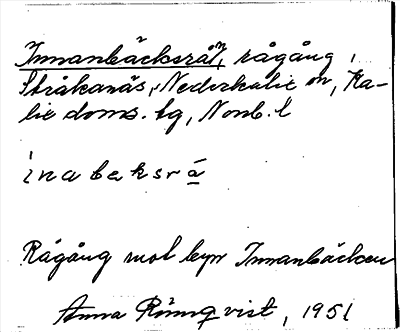 Innanbäcksrån, rågång i
Stråkanäs, Nederkalix sn, Ka-
lix doms. tg, Nonb. l
inabaksrá
Rågång mot byn Innanbäcken
Anna Rönnqvist, 1951